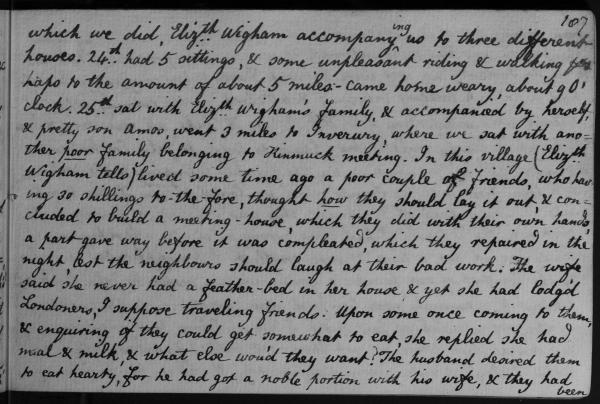 187
which we did, Elizth Wigham accompanying us to three different
houses. 24th had 5 sittings, & some unpleasant riding & walking per=
haps to the amount of about 5 miles - came home weary, about 9 O'
clock. 25th sat with Elizth Wigham's family, & accompanied by herself,
& pretty son Amos, went 3 miles to Inverury, where we sat with ano=
ther poor family belonging to Kinmuck meeting. In this village (Elizth
Wigham tells) lived some time ago a poor couple of friends, who hav=
ing 20 shillings to-the-fore, thought how they should lay it out & con=
cluded to build a meeting-house, which they did with their own hands,
a part gave way before it was compleated, which they repaired in the
night, lest the neighbours should laugh at their bad work. The wife
said she never had a feather-bed in her house & yet she had lodg'd
Londoners, I suppose traveling friends. Upon some once coming to them,
& enquiring if they could get somewhat to eat, she replied she had
meal & milk, & what else woud they want? The husband desired them
to eat hearty, for he had got a noble portion with his wife, & they had
been